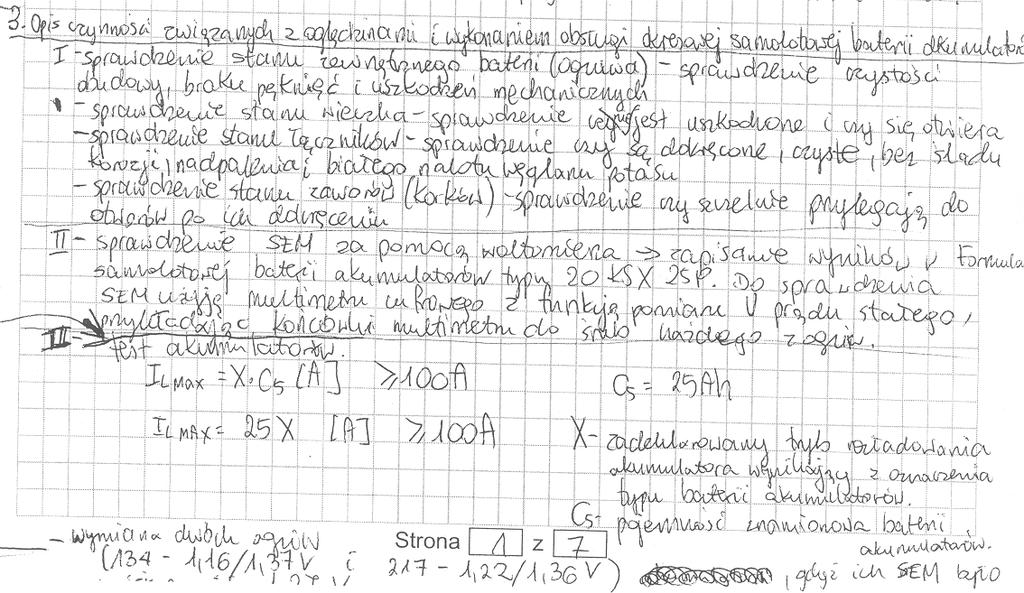 3. Opis czynności związanych z oględzinami i wykonaniem obsługi okresowej samolotowej baterii akumulator
I - sprawdzenie stanu zewnętrznego baterii (ogniwa) - sprawdzenie czystości
obudowy, braku pęknięć i uszkodzeń mechanicznych
- sprawdzenie stanu wieczka - sprawdzenie jest uszkodzone i czy się otwiera
- sprawdzenie stanu łączników - sprawdzenie czy są dokręcone, czyste, bez śladu
korozji, nadpalenia i białego nalotu węglanu potasu
- sprawdzenie stanu zaworów (korków) - sprawdzenie czy szczelnie przylegają do
otworów po ich dokręceniu
II - sprawdzenie SEM za pomocą woltomierza → zapisanie wyników w Formula
samolotowej baterii akumulatorów typu 20 KSX 25P. Do sprawdzenia
SEM użyję multimetru cyfrowego z funkcją pomiaru U prądu stałego,
przykładając końcówki multimetru do śrub każdego z ogniw.
III - test akumulatorów.
I_L MAX = X · C5 [A] ≥ 100A C5 = 25Ah
I_L MAX = 25X [A] ≥ 100A X - zadeklarowany tryb rozładowania
akumulatora wynikający z oznaczenia
typu baterii akumulatorów.
C5 - pojemność znamionowa baterii
akumulatorów.
- wymiana dwóch ogniw Strona 1 z 7
(134 - 1,16/1,37V i 217 - 1,22/1,36V) , gdyż ich SEM było